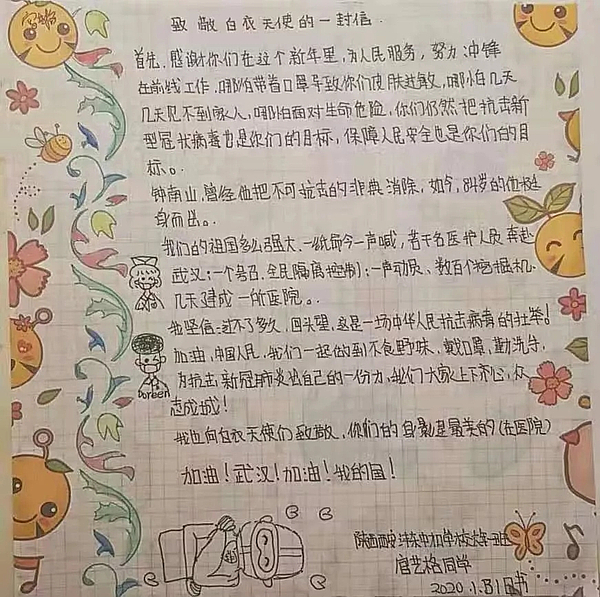 致敬白衣天使的一封信.
首先,感谢你们在这个新年里,为人民服务,努力冲锋
在前线工作,哪怕带着口罩导致你们皮肤过敏,哪怕几天
几天见不到家人,哪怕面对生命危险,你们仍然把抗击新
型冠状病毒当是你们的目标,保障人民安全也是你们的目
标。
钟南山,曾经他把不可抗击的非典消除,如今,84岁的他挺
身而出。
我们的祖国多么强大,一纸命令一声喊,若干名医护人员奔赴
武汉;一个号召,全民隔离控制;一声动员、数百个挖掘机.
几天建成一所医院。
我坚信:过不了多久,回头望,这是一场中华人民抗击病毒的壮举!
加油,中国人民,我们一起做到不食野味,戴口罩,勤洗手,
为抗击新冠肺炎出自己的一份力,我们大家上下齐心,众
志成城!
Doreen
我也向白衣天使们致敬,你们的身影是最美的(在医院)
加油!武汉!加油!我的国!
陕西西安
唐艺格同学
2020.1.31日书